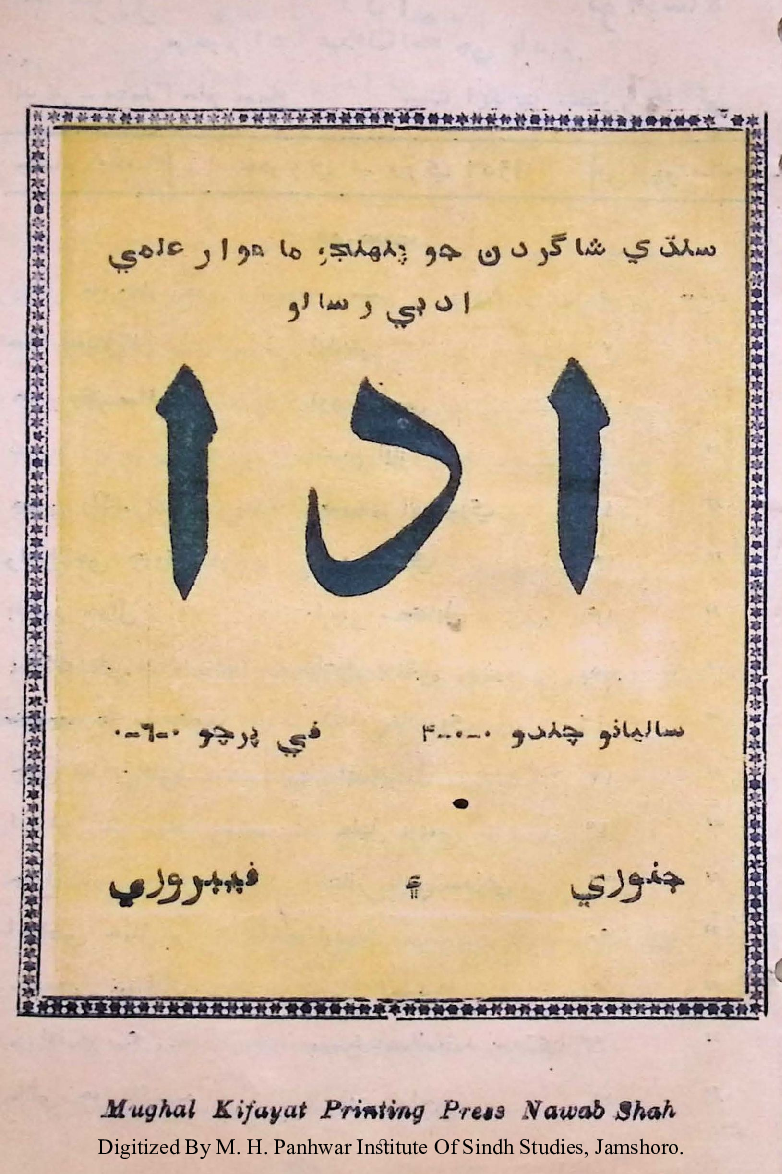 سنڌي شاگردن جو پنهنجو ماهوار علمي
ادبي رسالو
ادا
ساليانو چندو ۰-۰-۴ في پرچو ۰-٦-۰
جنوري ۽ فيبروري
Mughal Kifayat Printing Press Nawab Shah
Digitized By M. H. Panhwar Institute Of Sindh Studies, Jamshoro.